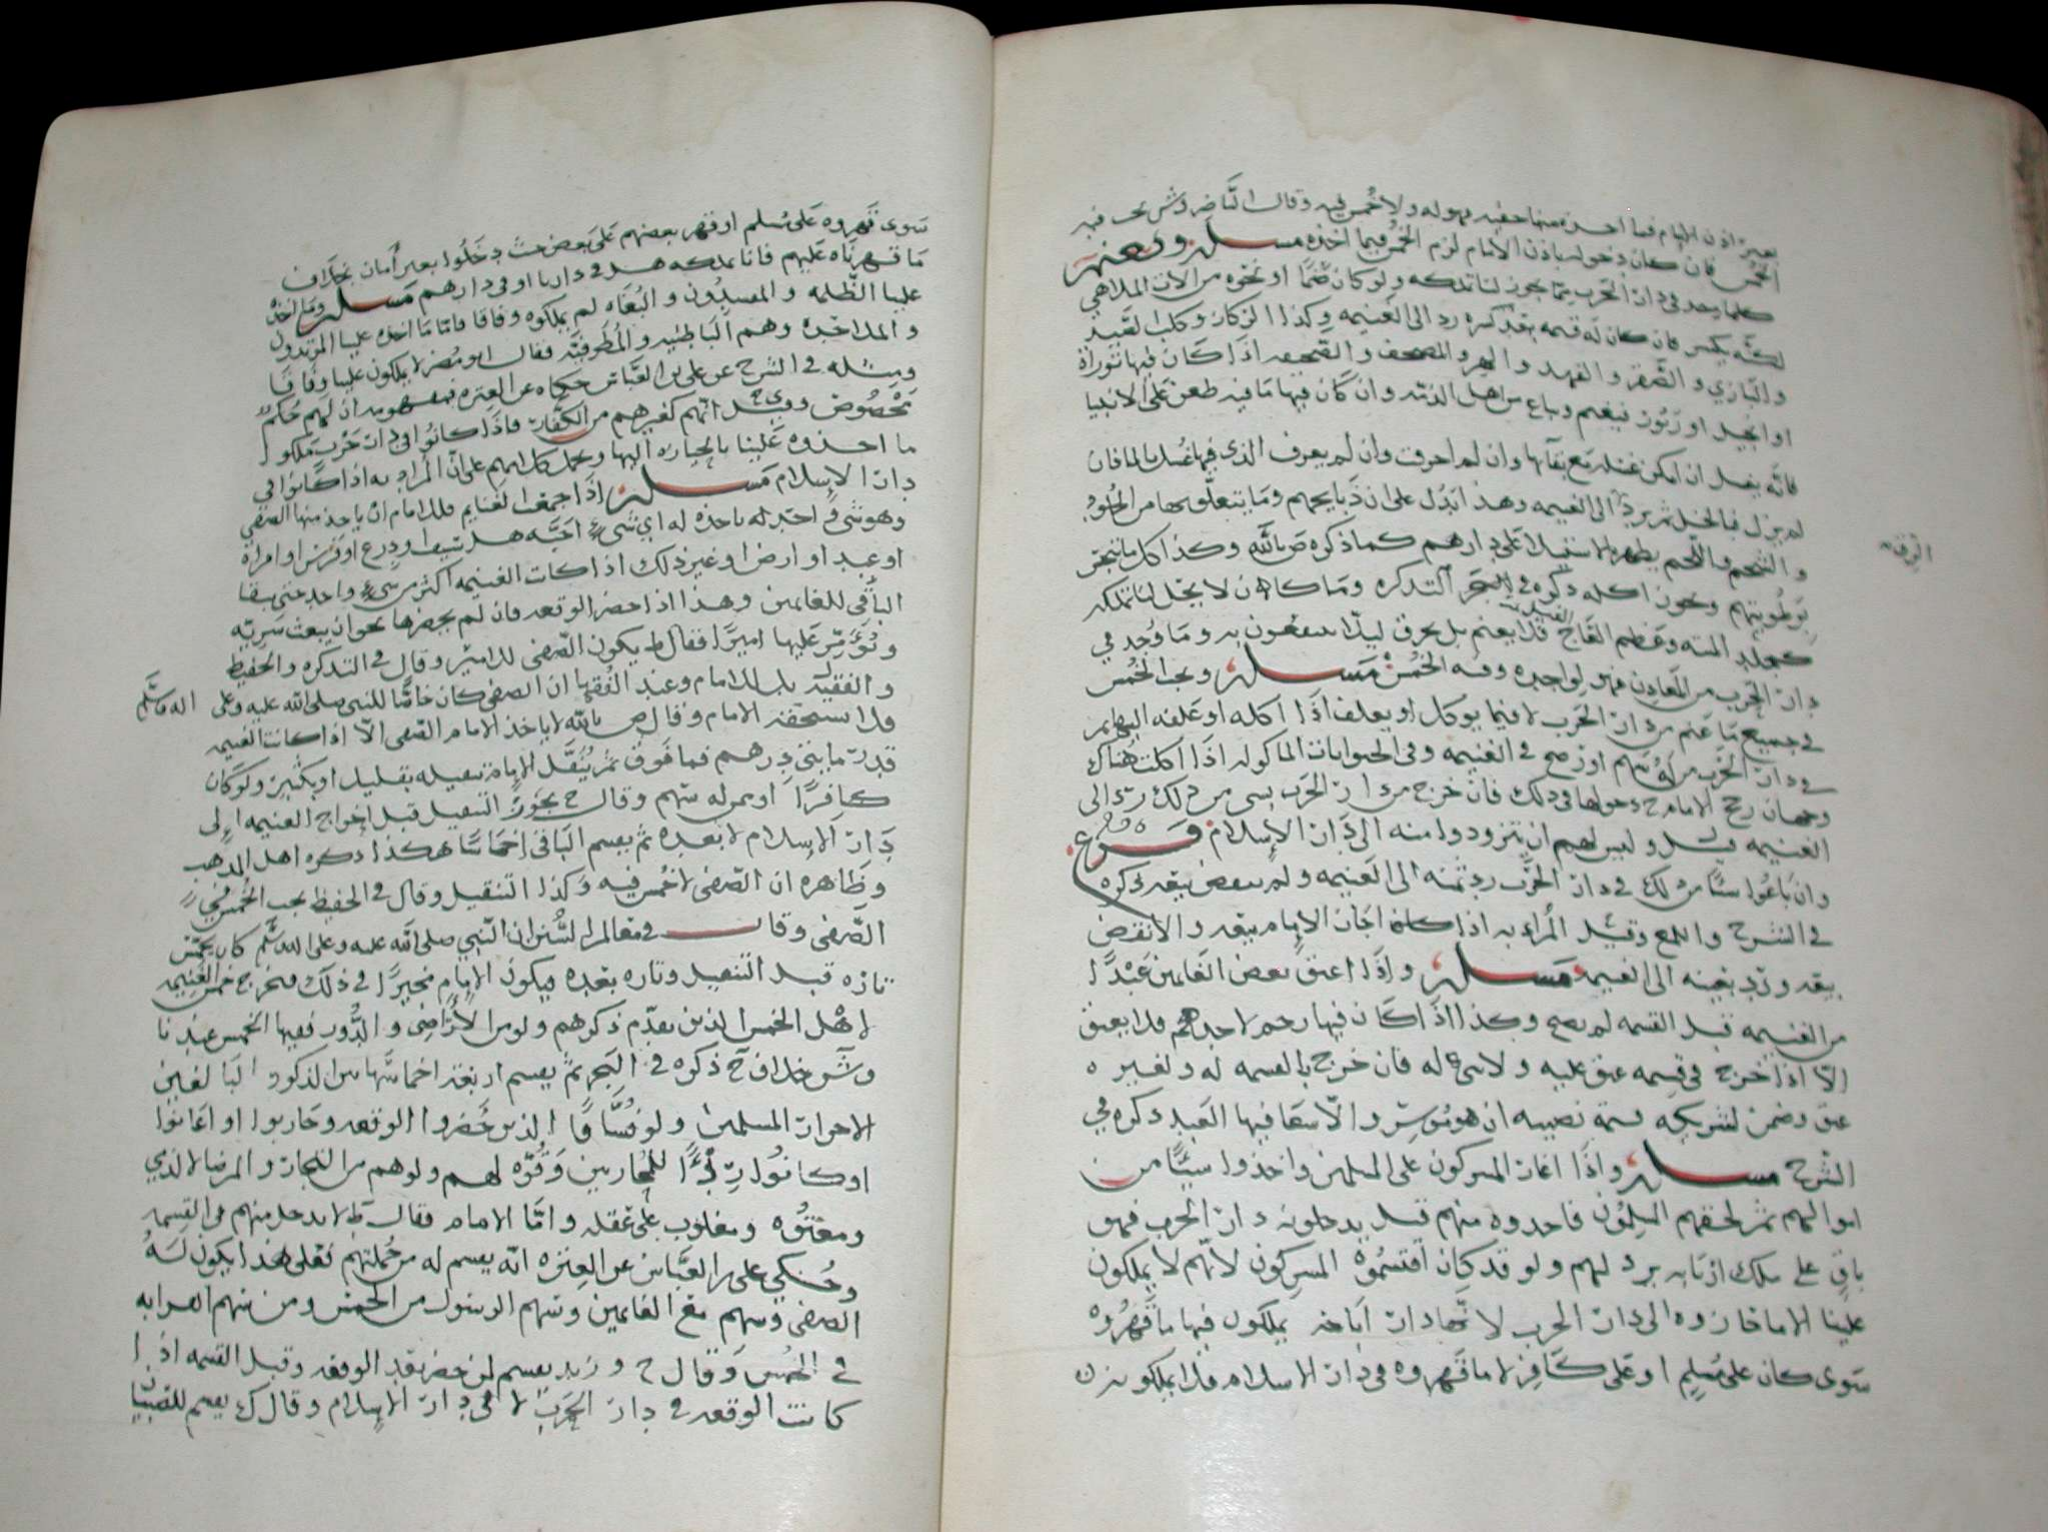 بغير اذن الامام فما اخذه منها حفيه فهو له ولا خمس فيه وقال الناصر وش يجب فيه
الخمس فان كان دخوله باذن الامام لزم الخمس فيما اخذه مسله ويغنم
كلما يوجد في دار الحرب مما يجوز لنا تملكه ولو كان صنما او نحوه من الات الملاهي
لكنه يكسر فان كان له قيمه بعد كسره رد الى الغنيمه وكذا الركاز وكلب الصيد
والبازي والصقر والفهد والهر والمصحف والصحيفه اذا كان فيها توراة
او انجيل او زبور فيغنم ويباع من اهل الذمه وان كان فيها ما فيه طعن على الانبيا
فانه يغسل ان امكن غسله مع بقآيها وان لم احرقت وان لم يعرف الذي فيها غسل بالما فان
لم يزل فبالخل ثم يرد الى الغنيمه وهذا ايدل على ان ذبايحهم وما يتعلق بها من الجلود
والشحم واللحم يطهره الاستيلا على دارهم كما ذكره ص بالله وكذا كل ما ينجس
برطوبتهم ويجوز اكله ذكره في البحر التذكره وما كان لا يحل لنا تملكه
كجلد الميته وعظم العاج فلا يغنم بل يحرق ليلا ينتفعون به وما وجد في
دار الحرب من المعادن فهو لواجده وفيه الخمس مسله ويجب الخمس
في جميع ما غنم من دار الحرب الا فيما يوكل او يعلف اذا اكله او علفه البهايم
في دار الحرب من له سهم او رضخ في الغنيمه وفي الحيوانات الماكوله اذا اكلت هناك
الغنيمه قيل وليس لهم ان يتزودوا منه الى دار الاسلام فرع
وان باعوا شيا من ذلك في دار الحرب رد ثمنه الى الغنيمه ولم ينقض بيعه ذكره
في الشرح واللمع وقيل المراد به اذا كان اجاز الامام بيعه والا نقض
بيعه ورد بعينه الى الغنيمه مسله واذا اعتق بعض الغانمين عبدا
من الغنيمه قبل القسمه لم يصح وكذا اذا كان فيها رحم لاحدهم فلا يعتق
الا اذا خرج في قسمه عتق عليه ولا شي له فان خرج بالقسمه له ولغيره
عتق وضمن لشريكه قيمة نصيبه ان هو موسر والا سعا فيها العبد ذكره في
الشرح مسله واذا اغار المشركون على المسلمين واخذوا شيئا من
اموالهم ثم لحقهم المسلمون فاخذوه منهم قبل يدخلونه دار الحرب فهو
باق على ملك اربابه يرد لهم ولو قد كان اقتسموه المشركون لانهم لا يملكون
علينا الا ما حازوه الى دار الحرب لانها دار اباحه يملكون فيها ما قهروه
سوى كان على مسلم او على كافر لا ما قهروه في دار الاسلام فلا يملكونه
سوى قهروه على مسلم او قهر بعضهم على بعض حيث دخلوا بغير امان بخلاف
ما قهرناه عليهم فانا نملكه هل في دارنا او في دارهم مسله وما اخذه
علينا الظلمه والمفسدون والبغاه لم يملكوه وفاقا فاما ما اخذه علينا المرتدون
والملاحده وهم الباطنيه والمطرفيه فقال ابو مضر لا يملكون علينا وفاقا
ومثله في الشرح عن علي بن العباس حكاه عن العتره
مخصوص وقيل انهم كغيرهم من الكفار فاذا كانوا في دار حرب ملكوا
ما اخذوه علينا بالحيازه اليها ويحمل كلامهم على ان المراد به اذا كانوا في
دار الاسلام مسله اذا جمعت الغنايم فللامام ان ياخذ منها الصفي
وهو شي اختير له ياخذه له اي شيء احبه هل سيفا ودرع او فرس او امراة
او عبد او ارض او غير ذلك اذا كانت الغنيمه اكثر من شيء واحد حتى يبقا
الباقي للغانمين وهذا اذا حضر الوقعه فان لم يحضرها نحو ان يبعث سريه
ونومر عليها اميرا فقال ط يكون الصفي للامير وقال في التذكره والحفيظ
والفقيه بل للامام وعند الفقها ان الصفي كان خاصا للنبي صلى الله عليه وعلى اله وسلم
فلا يستحقه الامام وقال ص بالله لا ياخذ الامام الصفي الا اذا كانت الغنيمه
قدر مايتي درهم فما فوق ثم ينفل الامام تنفيله بقليل او بكثير ولو كان
كافرا او من له سهم وقال ح يجوز التنفيل قبل اخراج الغنيمه الى
دار الاسلام لا بعده ثم يقسم الباقي اخماسا هكذا ذكره اهل المذهب
وظاهره ان الصفي لا خمس فيه وكذا التنفيل وقال في الحفيظ يجب الخمس في
الصفي وقال في معالم السنن ان النبي صلى الله عليه وعلى اله وسلم كان يخمس
تاره قبل التنفيل وتاره بعده فيكون الامام مخيرا في ذلك فيخرج خمس الغنيمه
لاهل الخمس الذين تقدم ذكرهم ولو من الاراضي والدور ففيها الخمس عندنا
وش خلاف ح ذكره في البحر ثم يقسم اربعة اخماسها بين الذكور البالغين
الاحرار المسلمين ولو فساقا الذين حضروا الوقعه وحاربوا او اعانوا
او كانوا ردءا للمحاربين وقوه لهم ولو هم من التجار والمرضا لا الذي
ومعتوه ومغلوب على عقله واما الامام فقال ط لا يدخل منهم في القسمه
وحكي علي بن العباس عن العتره انه يقسم له من جملتهم فعلى هذا يكون له
الصفي وسهم مع الغانمين وسهم الرسول من الخمس ومن سهم القرابه
في الخمس وقال ح وزيد يقسم لمن حضر بعد الوقعه وقبل القسمه اذا
كانت الوقعه في دار الحرب لا في دار الاسلام وقال ك يقسم للصبيان